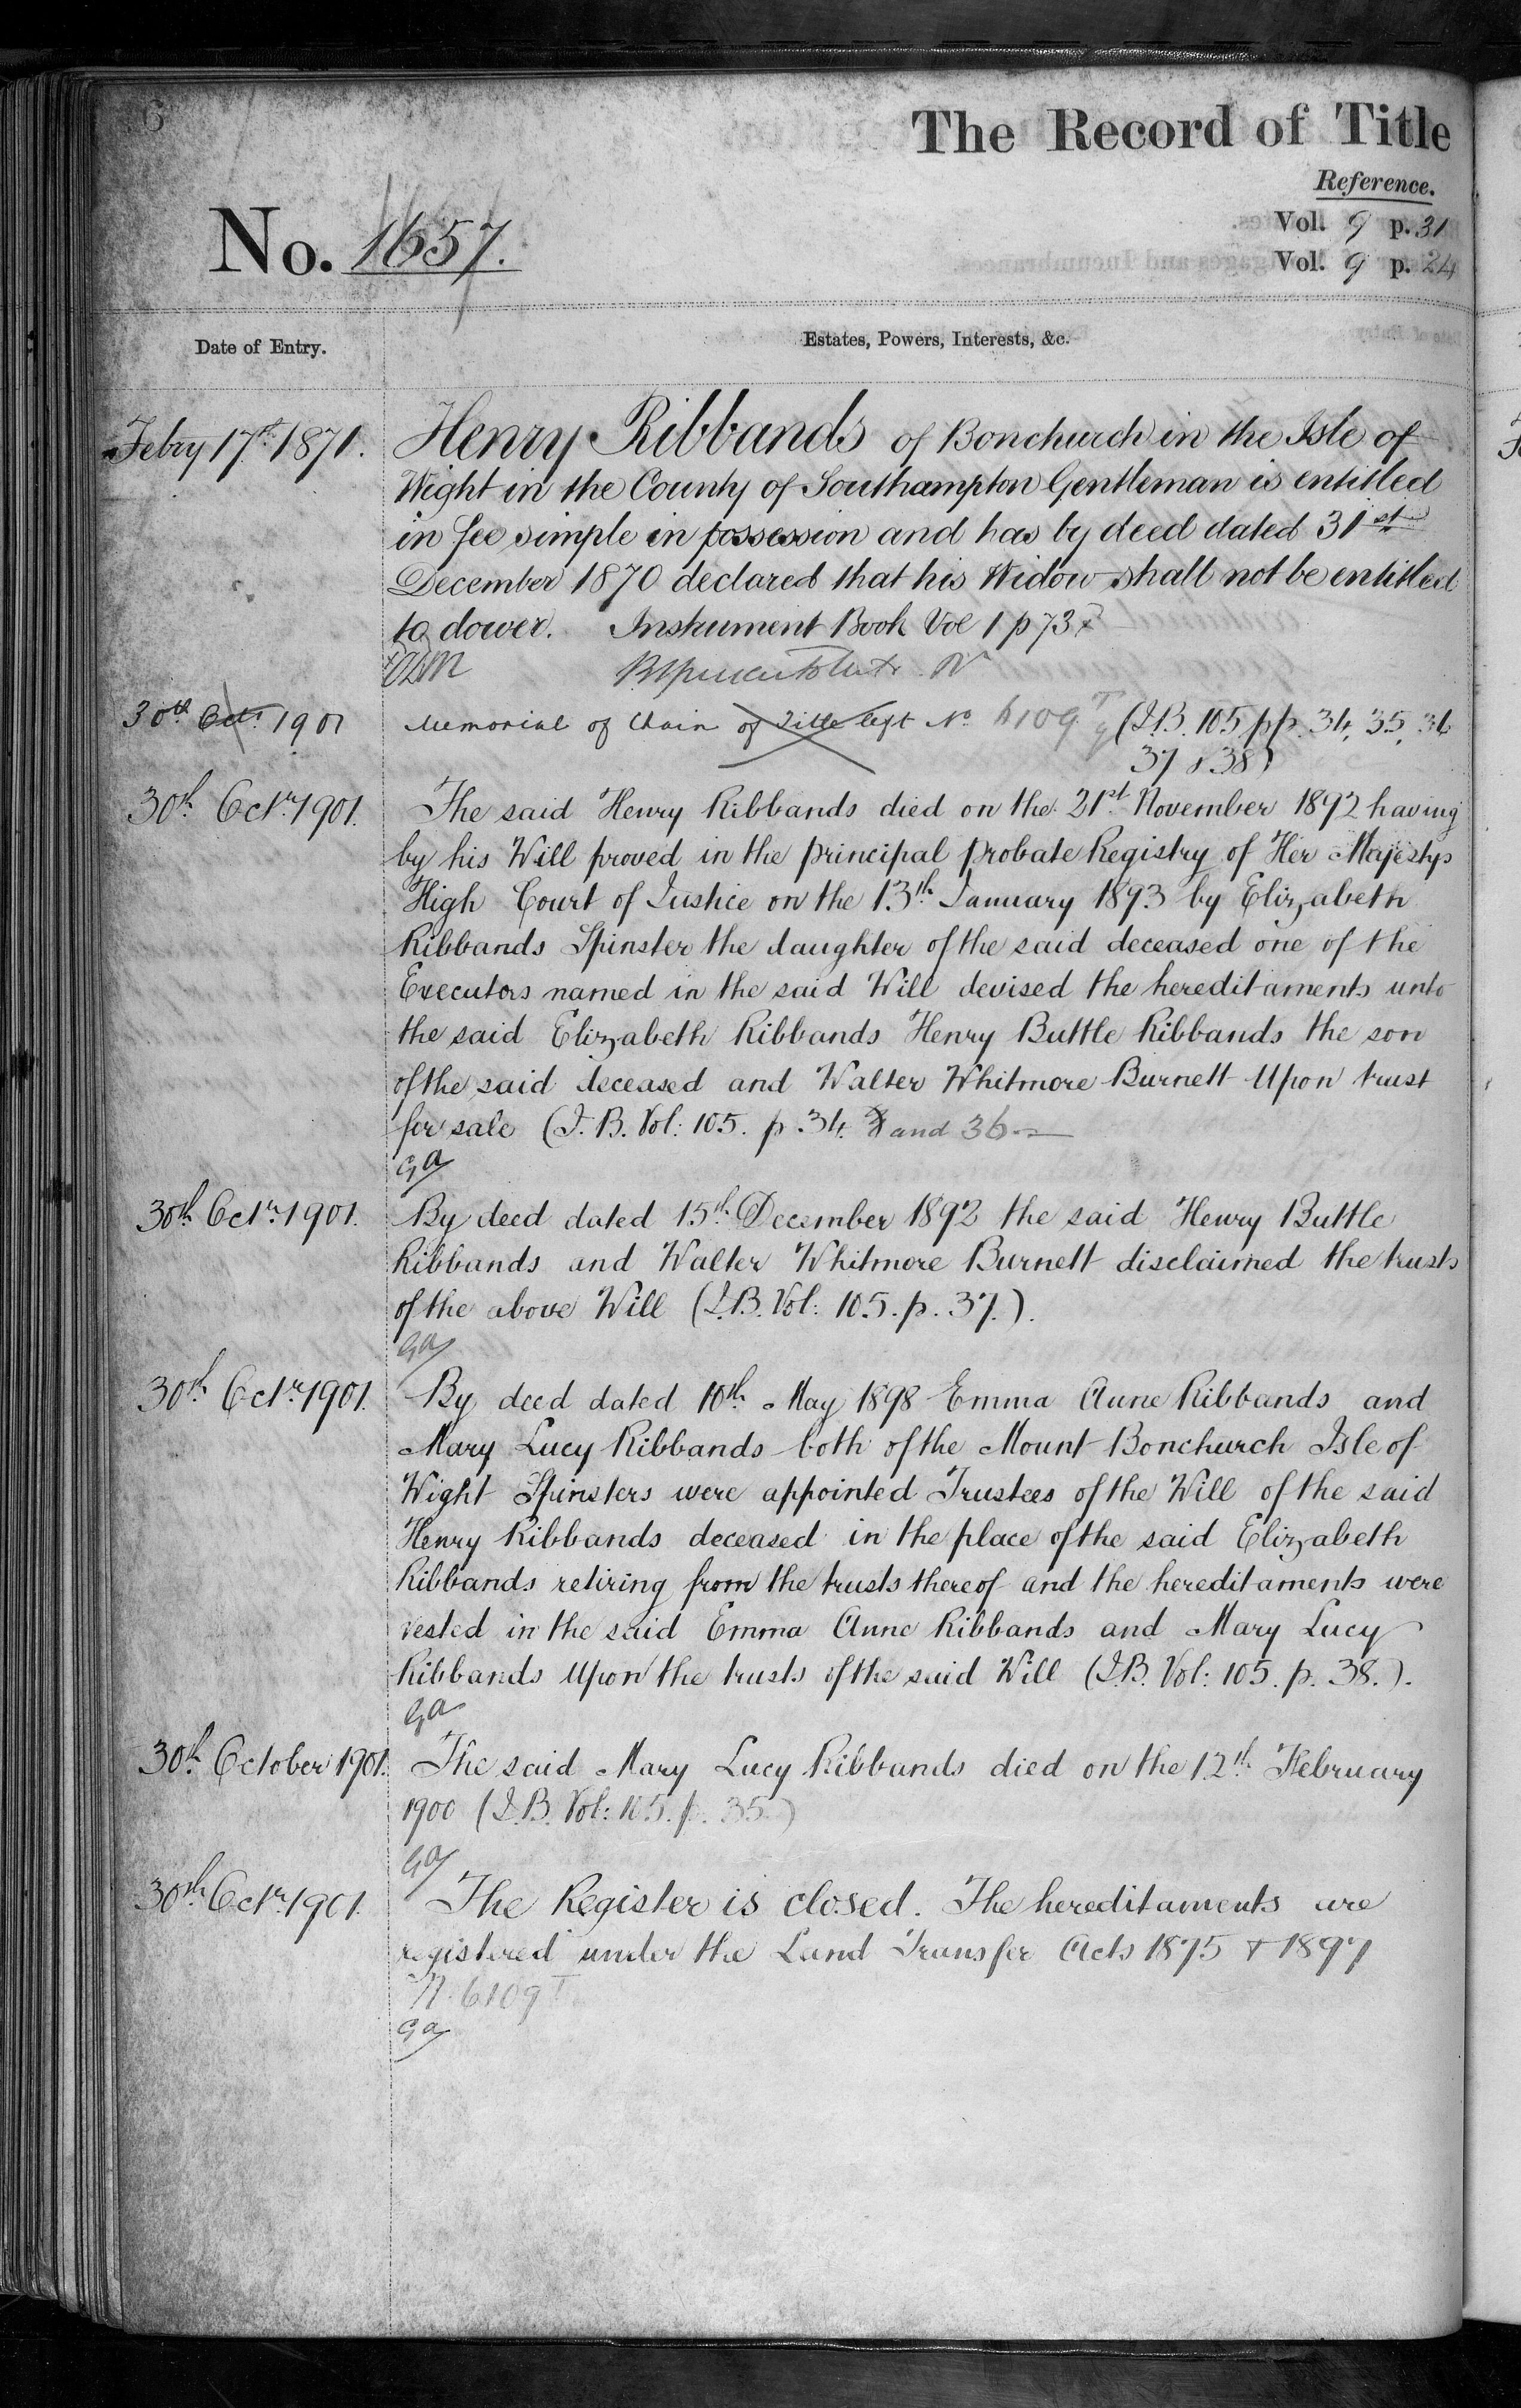 6
The Record of Title
Reference.
No. 1657.
Vol. 9 p. 31
Vol. 9 p. 24
Date of Entry.
Estates, Powers, Interests, &c.
Febry 17th 1871.
Henry Ribbands of Bonchurch in the Isle of
Wight in the County of Southampton Gentleman is entitled
in fee simple in possession and has by deed dated 31st
December 1870 declared that his Widow shall not be entitled
to dower. Instrument Book Vol 1 p 737
30th Octr 1901
Memorial of Chain of Title left No 6109 T (I.B. 105 pp. 34, 35, 36
37 & 38)
30th Octr. 1901.
The said Henry Ribbands died on the 21st November 1892 having
by his Will proved in the principal probate Registry of Her Majestys
High Court of Justice on the 13th January 1893 by Elizabeth
Ribbands Spinster the daughter of the said deceased one of the
Executors named in the said Will devised the hereditaments unto
the said Elizabeth Ribbands Henry Buttle Ribbands the son
of the said deceased and Walter Whitmore Burnett Upon trust
for sale (I.B. Vol: 105. p. 34. and 36
Ga
30th Octr. 1901.
By deed dated 15th December 1892 the said Henry Buttle
Ribbands and Walter Whitmore Burnett disclaimed the trusts
of the above Will (I.B. Vol: 105. p. 37.).
Ga
30th Octr. 1901.
By deed dated 10th May 1898 Emma Anne Ribbands and
Mary Lucy Ribbands both of the Mount Bonchurch Isle of
Wight Spinsters were appointed Trustees of the Will of the said
Henry Ribbands deceased in the place of the said Elizabeth
Ribbands retiring from the trusts thereof and the hereditaments were
vested in the said Emma Anne Ribbands and Mary Lucy
Ribbands Upon the trusts of the said Will (I.B. Vol: 105. p. 38.).
Ga
30th October 1901.
The said Mary Lucy Ribbands died on the 12th February
1900 (I.B. Vol: 105. p. 35.)
Ga
30th Octr. 1901.
The Register is closed. The hereditaments are
registered under the Land Transfer Acts 1875 & 1897
N. 6109 T
Ga